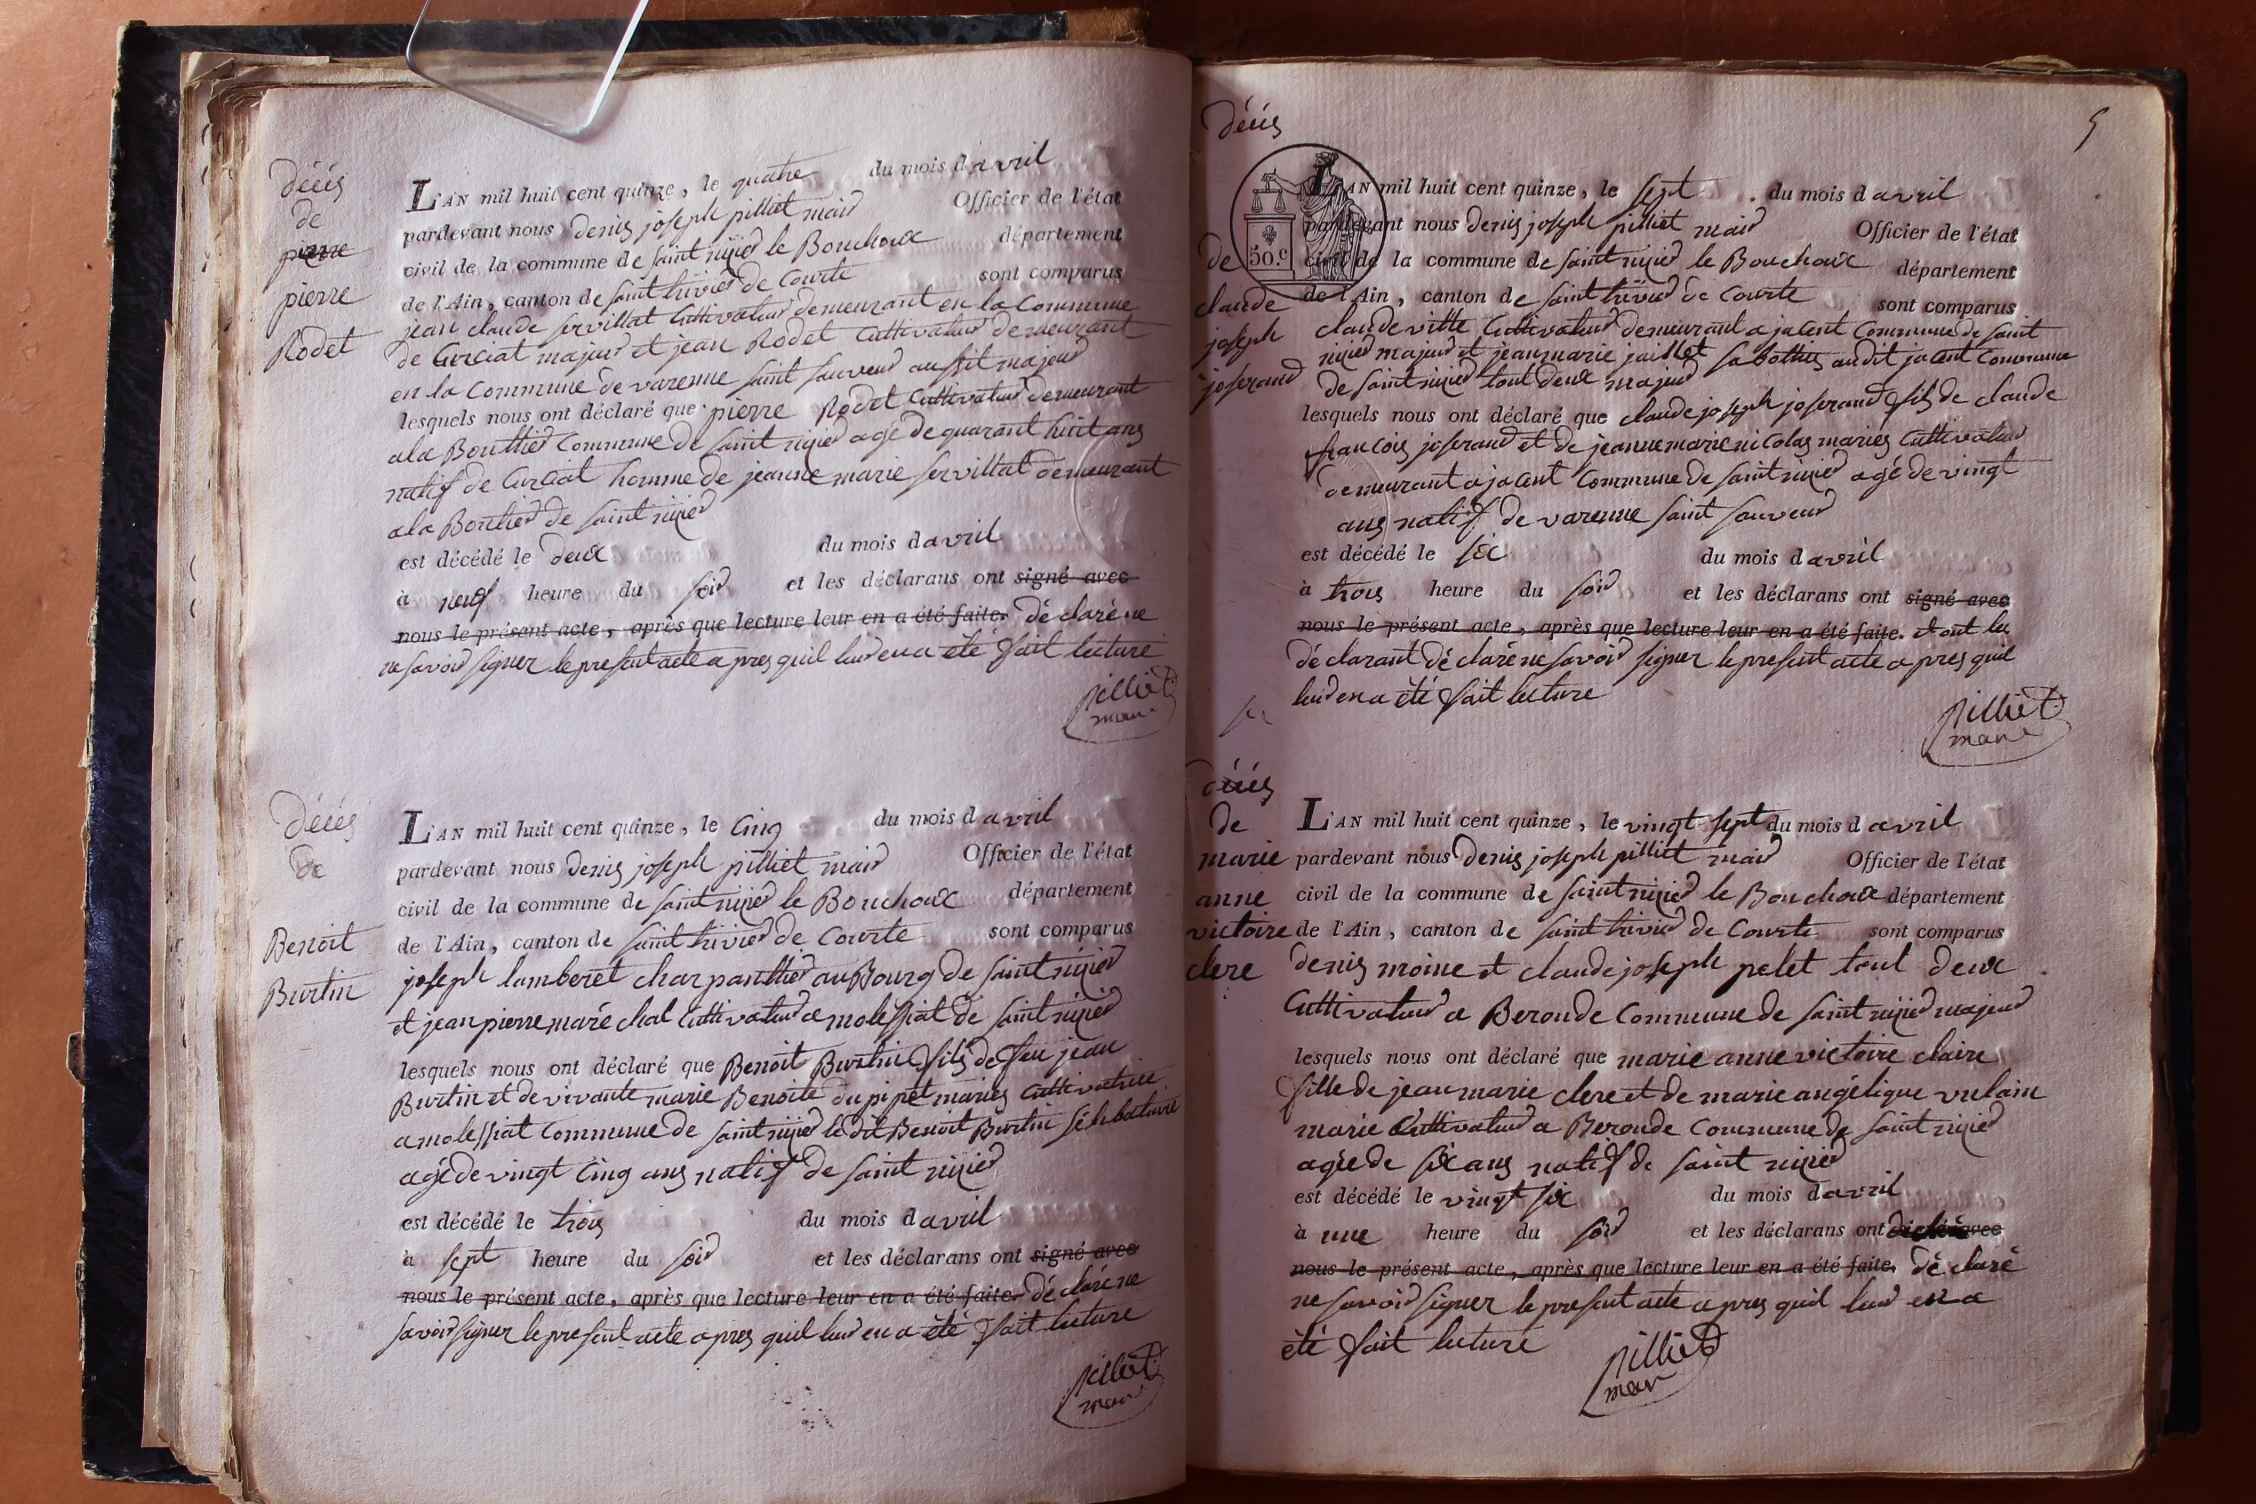 décés
de
pierre
pierre
Rodet
L'AN mil huit cent quinze, le quatre du mois d'avril
pardevant nous denis joseph pilliet maire Officier de l'état
civil de la commune de saint nizier le Bouchoux département
de l'Ain, canton de saint trivier de Courte sont comparus
jean claude servillat Cultivateur demeurant en la Commune
de Curciat majeur et jean Rodet Cultivateur demeurant
en la Commune de varenne saint sauveur aussit majeur
lesquels nous ont déclaré que pierre Rodet Cultivateur demeurant
a la Bouthier Commune de saint nizier agé de quarant huit ans
natif de Curciat homme de jeanne marie servillat demeurant
a la Boutier de saint nizier
est décédé le deux du mois d avril
à neuf heure du soir et les déclarans ont signé avec
nous le présent acte, après que lecture leur en a été faite. déclaré ne
ne savoir signer le present acte apres quil leur en a été fait lecture
pilliet
maire
Décés
De
Benoit
Burtin
L'AN mil huit cent quinze, le Cinq du mois d avril
pardevant nous denis joseph pilliet maire Officier de l'état
civil de la commune de saint nizier le Bouchoux département
de l'Ain, canton de saint trivier de Courte sont comparus
joseph lamberet charpanthier au Bourg de saint nizier
et jean pierre maréchal Cultivateur a molessiat de saint nizier
lesquels nous ont déclaré que Benoit Burtin fils de feu jean
Burtin et de vivante marie Benoite dupipet mariés Cultivatrice
a molessiat Commune de saint nizier le dit Benoit Burtin sélibatairé
agé de vingt Cinq ans natif de saint nizier
est décédé le trois du mois d avril
à sept heure du soir et les déclarans ont signé avec
nous le présent acte, après que lecture leur en a été faite. déclaré ne
savoir signer le present acte apres quil leur en a été fait lecture
pilliet
maire
5
décés
de
claude
joseph
joserand
50.c
L'AN mil huit cent quinze, le sept du mois d avril
pardevant nous denis joseph pilliet maire Officier de l'état
civil de la commune de saint nizier le Bouchoux département
de l'Ain, canton de saint trivier de Courte sont comparus
claude vitte Cultivateur demeurant a jacent Commune de saint
nizier majeur et jean marie jaillet sabottier audit jacent Commune
de saint nizier tout deux majeur
lesquels nous ont déclaré que claude joseph joserand fils de claude
francois joserand et de jeanne marie nicolas mariés Cultivateur
demeurant a jacent Commune de saint nizier agé de vingt
ans natif de varenne saint sauveur
est décédé le six du mois d avril
à trois heure du soir et les déclarans ont signé avec
nous le présent acte, après que lecture leur en a été faite. et ont les
déclarant déclaré ne savoir signer le present acte apres quil
leur en a été fait lecture
pilliet
maire
décés
de
marie
anne
victoire
clere
L'AN mil huit cent quinze, le vingt sept du mois d avril
pardevant nous denis joseph pilliet maire Officier de l'état
civil de la commune de saint nizier le Bouchoux département
de l'Ain, canton de saint trivier de Courte sont comparus
denis moine et claude joseph pelet tout deux
Cultivateur a Beronde Commune de saint nizier majeur
lesquels nous ont déclaré que marie anne victoire claire
fille de jean marie clere et de marie angélique vulain
marié Cultivateur a Beronde Commune de saint nizier
agée de six ans natif de saint nizier
est décédé le vingt six du mois d avril
à une heure du soir et les déclarans ont avec
nous le présent acte, après que lecture leur en a été faite. déclaré
ne savoir signer le present acte apres quil leur en a
été fait lecture
pilliet
maire